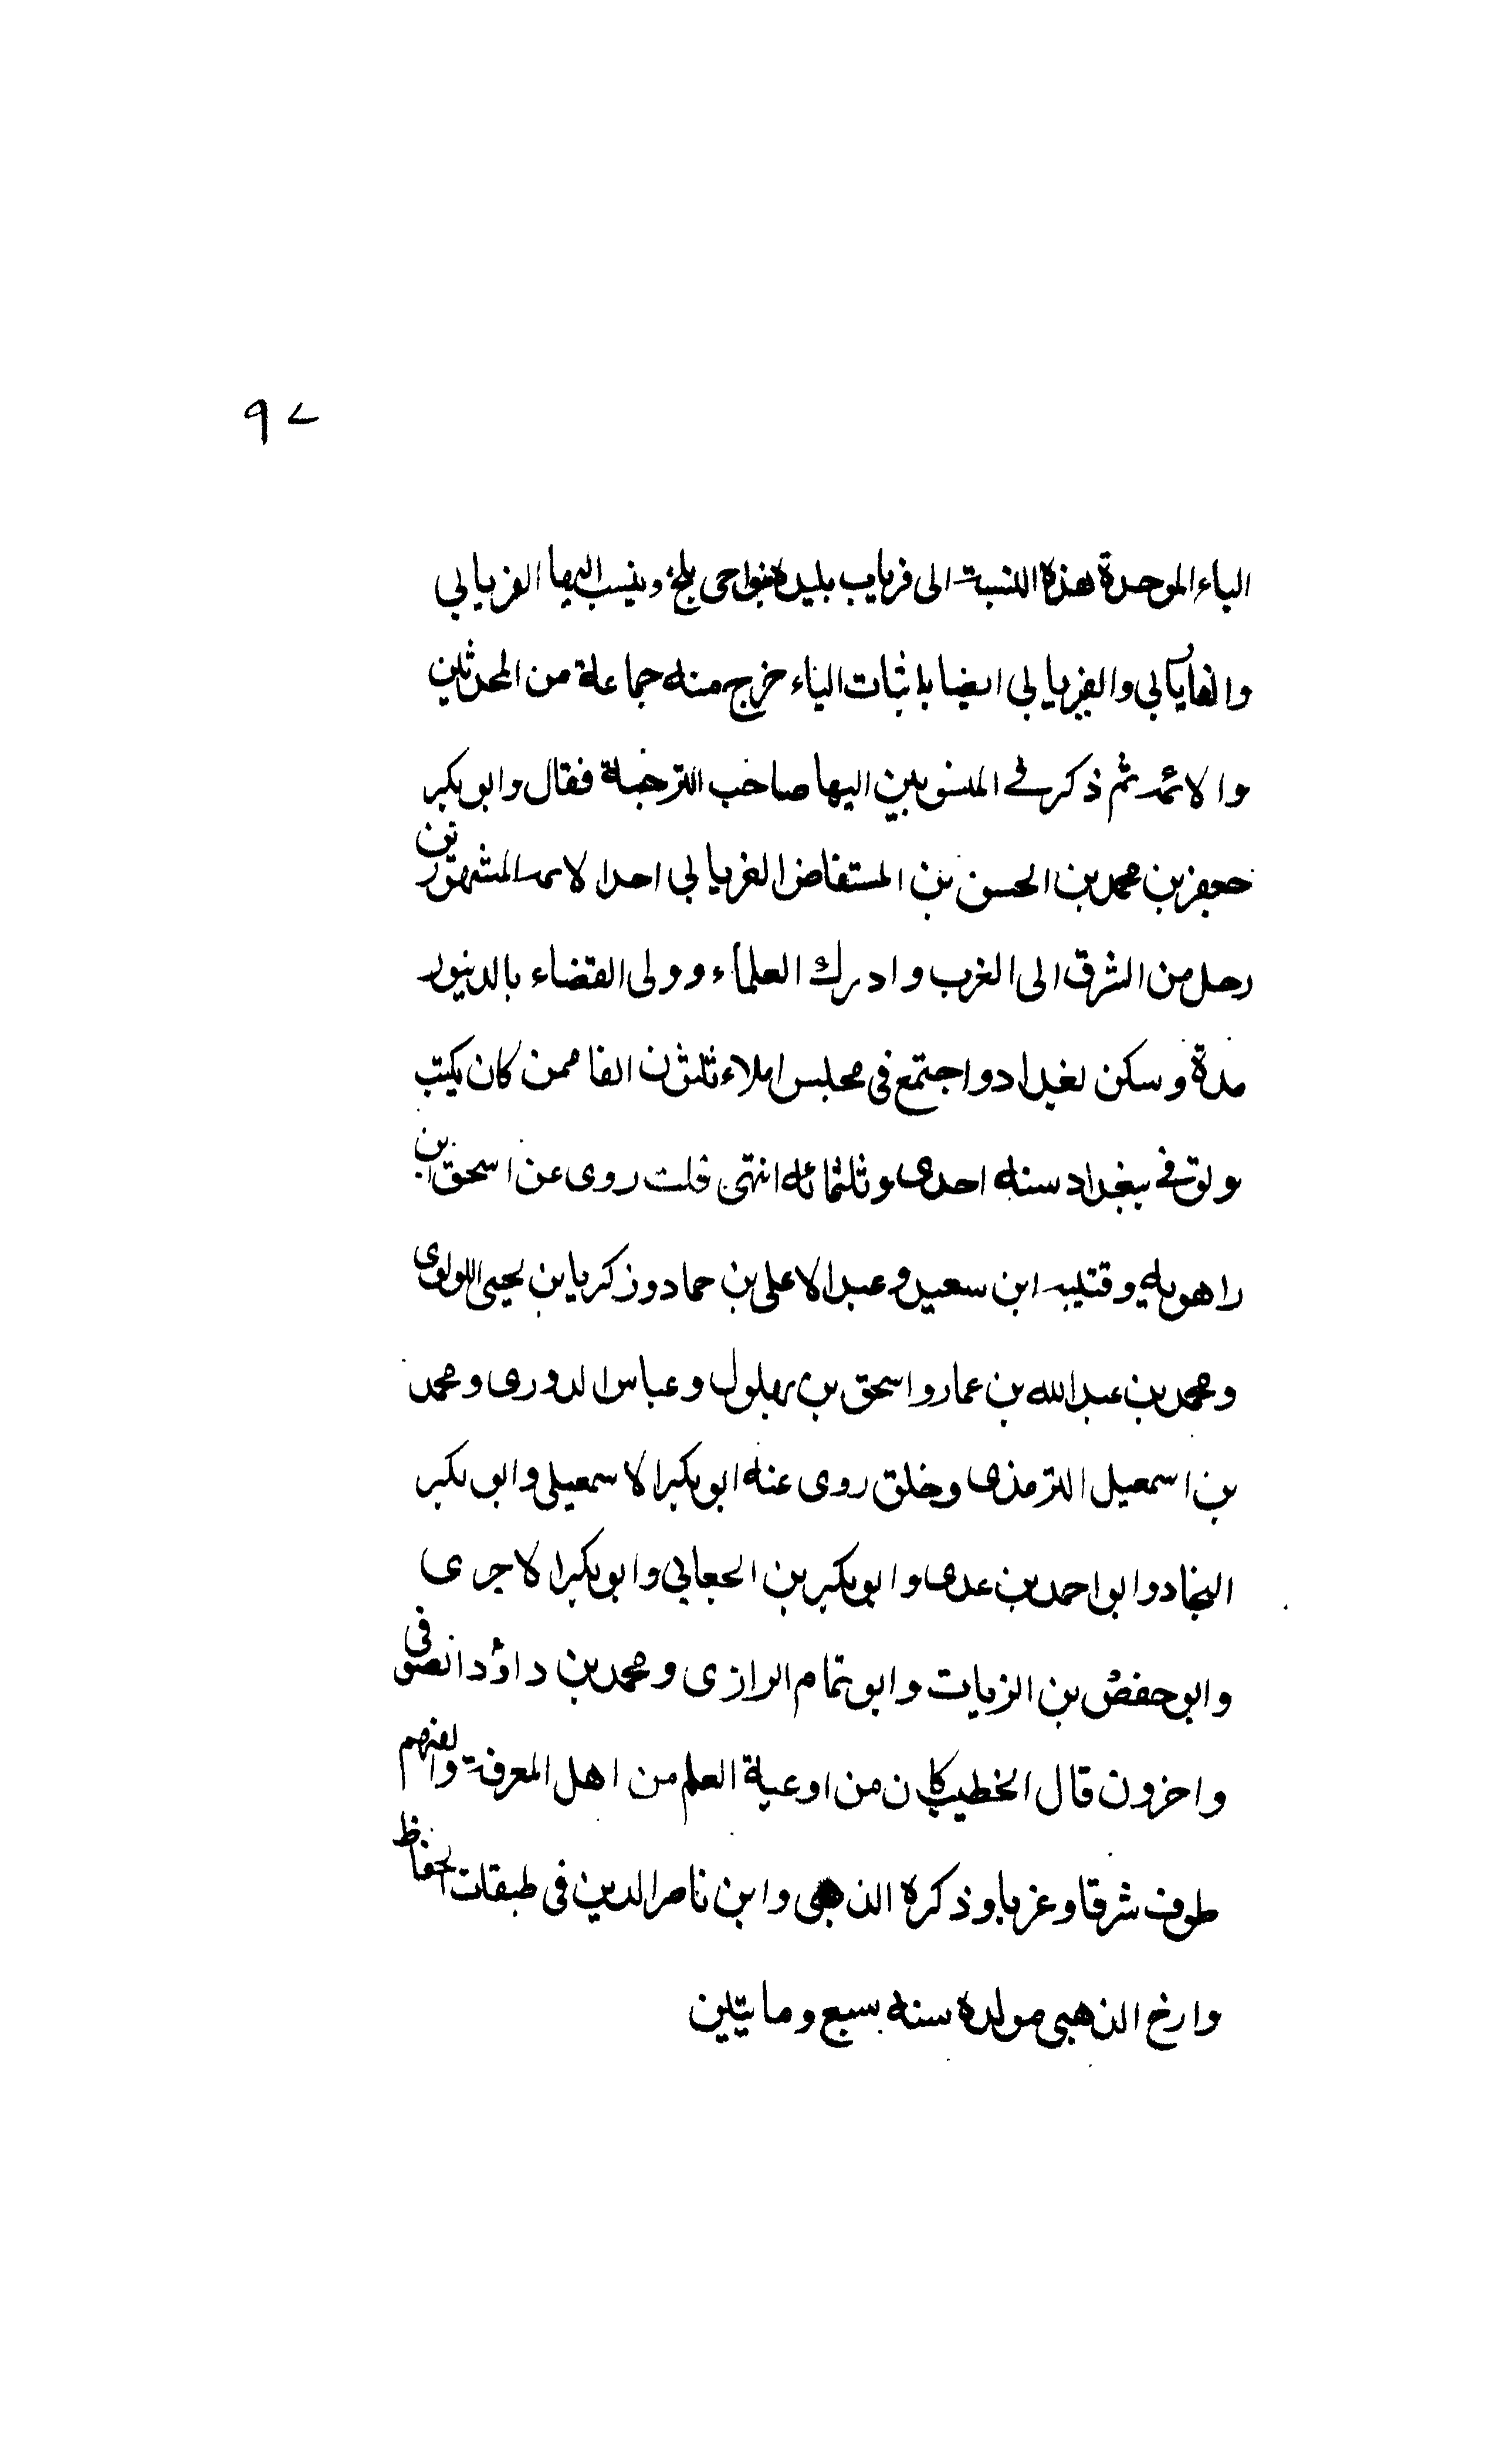 ٩٧
الباء الموحدة هذه النسبة الى فرياب بليدة بنواحى بلخ وينسب اليها الفريابي
والفاريابي والفيريابي ايضا باثبات الياء خرج منه جماعة من المحدثين
والائمه ثم ذكر في المنسوبين اليها صاحب الترجمة فقال وابو بكر
جعفر بن محمد بن الحسن بن المستفاض الفريابي احد الائمه المشهورين
رحل من الشرق الى الغرب وادرك العلماء وولى القضاء بالدينور
مدة وسكن بغداد واجتمع فى مجلس املاء ثلثون الفا ممن كان يكتب
وتوفي ببغداد سنه احدى وثلثمائه انتهى قلت روى عن اسحق ابن
راهويه وقتيبه ابن سعيد وعبد الاعلى بن حماد وزكريا بن يحيى اللولوى
ومحمد بن عبد الله بن عمار واسحق بن بهلول وعباس الدورى ومحمد
بن اسمعيل الترمذى وخلق روى عنه ابو بكر الاسمعيلى وابو بكر
النجاد وابو احمد بن عدى وابو بكر بن الجعابي وابو بكر الاجرى
وابو حفص بن الزيات وابو تمام الرازى ومحمد بن داؤد الصوفى
واخرون قال الخطيب كان من اوعية العلم من اهل المعرفة والفهم
طوف شرقا وغربا وذكره الذهبى وابن ناصر الدين فى طبقات الحفاظ
وارخ الذهبى مولده سنه سبع ومايتين